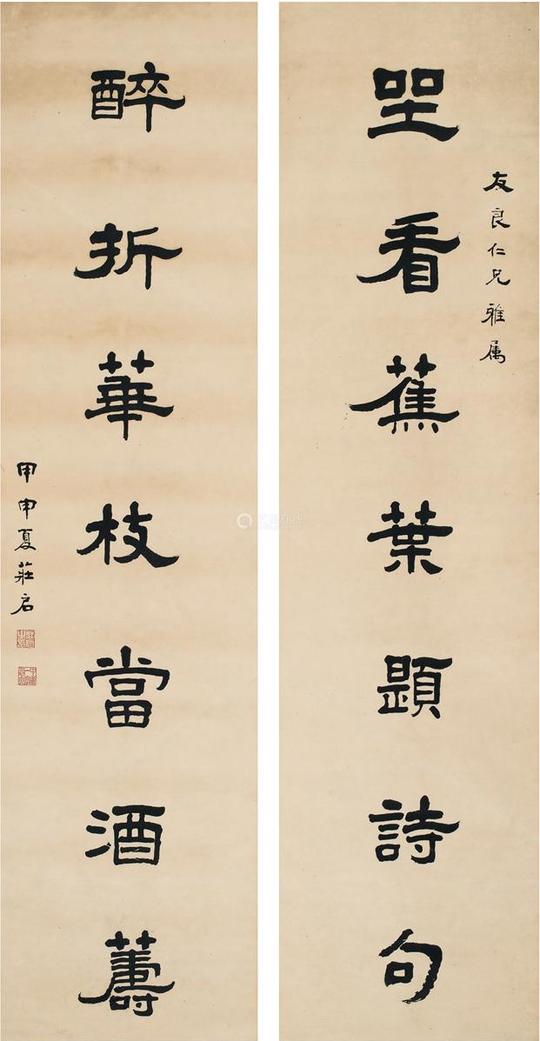 友良仁兄雅属
坐看蕉葉題詩句
醉折華枝當酒籌
甲申夏莊启